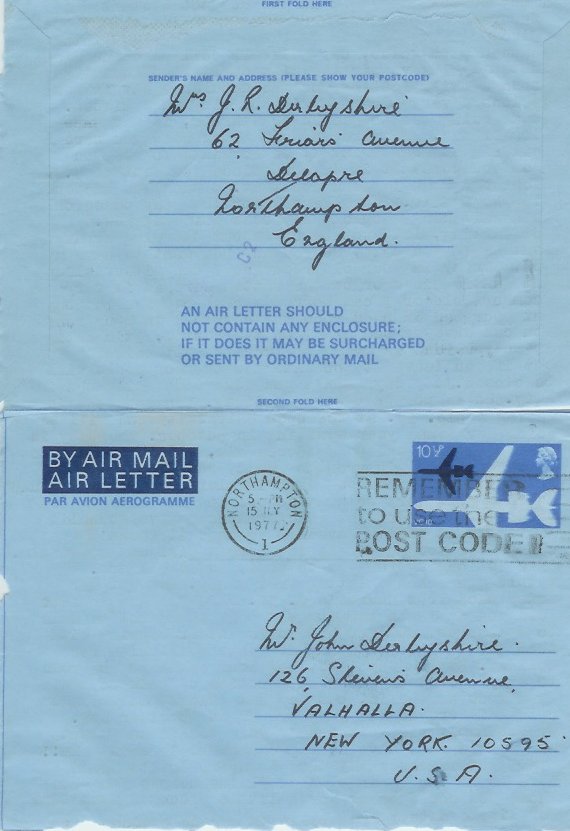 FIRST FOLD HERE
SENDER'S NAME AND ADDRESS (PLEASE SHOW YOUR POSTCODE)
Mrs J. R. Derbyshire
62 Friars Avenue
Delapre
Northampton
England.
C2
AN AIR LETTER SHOULD
NOT CONTAIN ANY ENCLOSURE;
IF IT DOES IT MAY BE SURCHARGED
OR SENT BY ORDINARY MAIL
SECOND FOLD HERE
BY AIR MAIL
AIR LETTER
PAR AVION AEROGRAMME
NORTHAMPTON
5 - PM
15 JLY
1977
1
10½p
REMEMBER
to use the
POST CODE
Mr John Derbyshire.
126, Stevens Avenue,
VALHALLA.
NEW YORK. 10595
U.S.A.